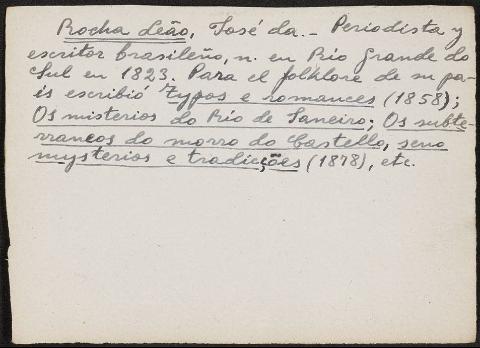 Rocha Leão, José da.- Periodista y
escritor brasileño, n. en Rio Grande do
Sul en 1823. Para el folklore de su pa-
ís escribió Typos e romances (1858);
Os misterios do Rio de Janeiro; Os subte-
rraneos do morro do Castello, seno
mysterios e tradicções (1878), etc.